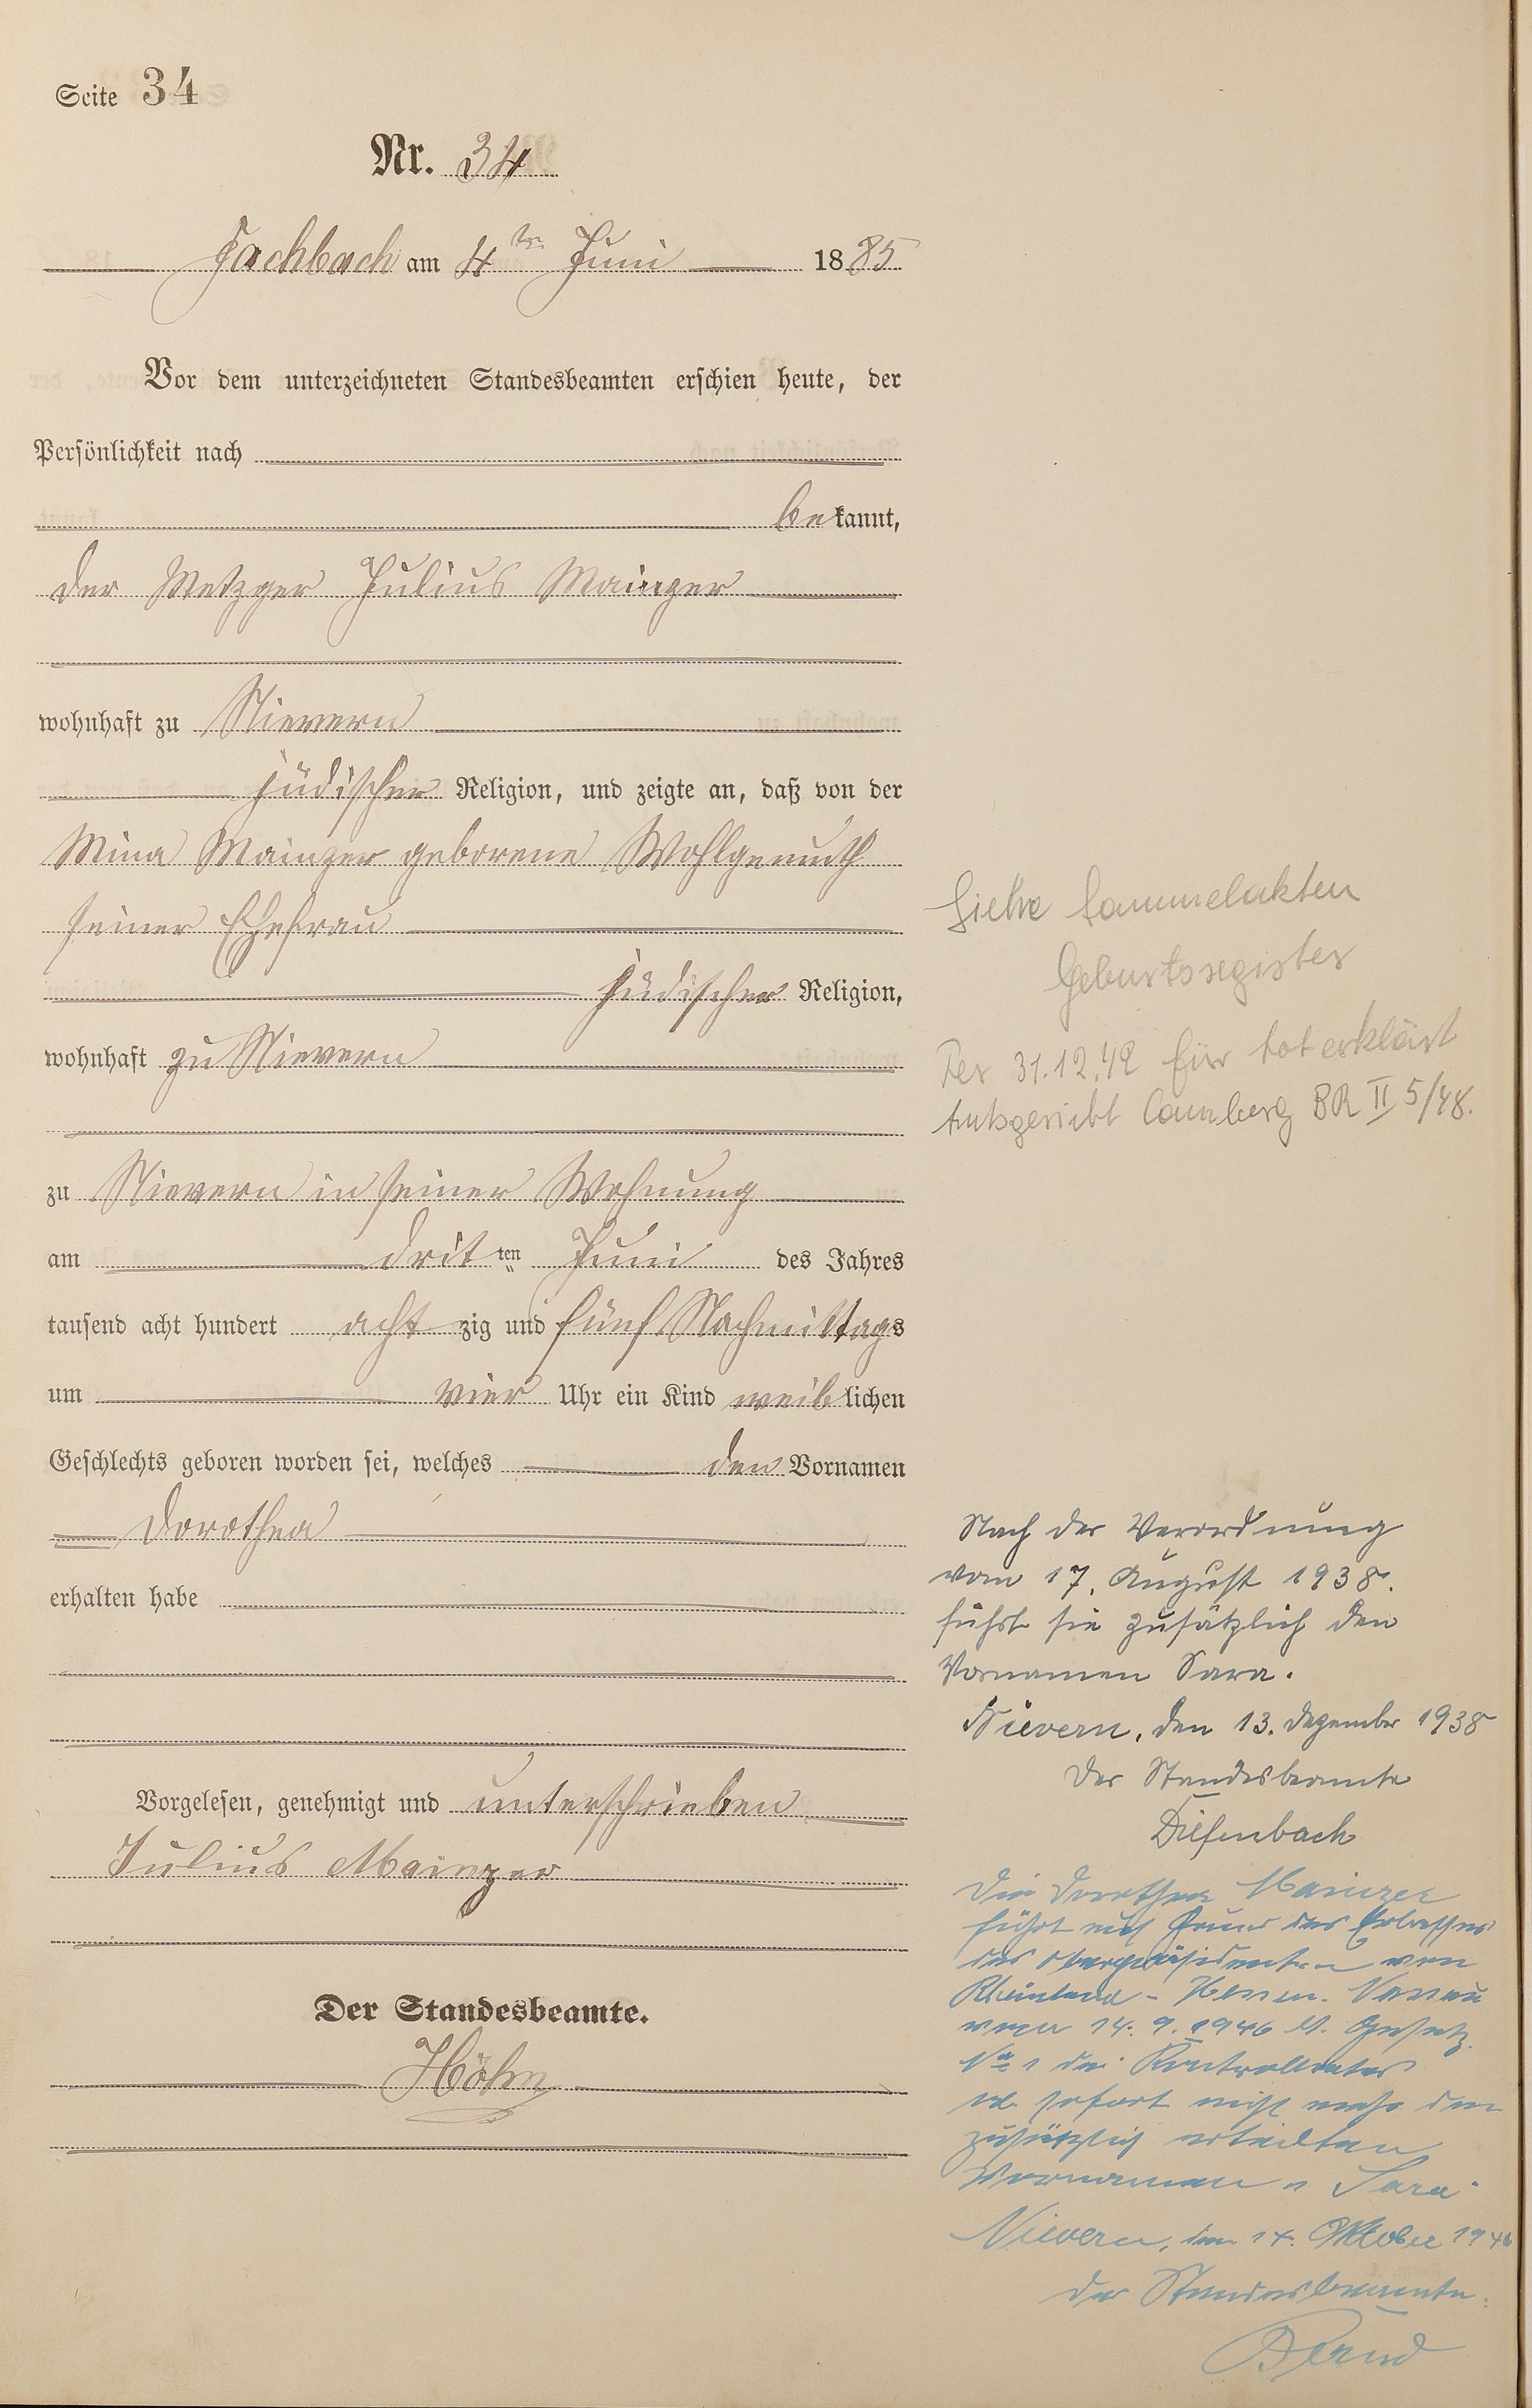 Seite 34
Nr. 34
Fachbach am 4ten Juni 1885
Vor dem unterzeichneten Standesbeamten erschien heute, der
Persönlichkeit nach
bekannt,
der Metzger Julius Mainzer
wohnhaft zu Nievern
jüdischer Religion, und zeigte an, daß von der
Mina Mainzer geborene Wohlgemuth
seiner Ehefrau
jüdischer Religion,
wohnhaft zu Nievern
zu Nievern in seiner Wohnung
am dritten Juni des Jahres
tausend acht hundert achtzig und fünf Nachmittags
um vier Uhr ein Kind weiblichen
Geschlechts geboren worden sei, welches den Vornamen
Dorothea
erhalten habe
Vorgelesen, genehmigt und unterschrieben
Julius Mainzer
Der Standesbeamte.
Höhn
Siehe Sammelakten
Geburtsregister
Per 31.12.42 für tot erklärt
Amtsgericht Camberg BR II 5/48.
Nach der Verordnung
vom 17. August 1938.
führt sie zusätzlich den
Vornamen Sara.
Nievern, den 13. Dezember 1938
Der Standesbeamte
Diefenbach
Die Dorothea Mainzer
führt auf Grund des Erlasses
des Oberpräsidenten von
Rheinland - Hessen-Nassau
vom 14. 9. 1946 Gesetz
No 1 der Kontrollrates
ab sofort nicht mehr den
zusätzlich erteilten
Vornamen "Sara"
Nievern, den 14. Oktober 1946
Der Standesbeamte.